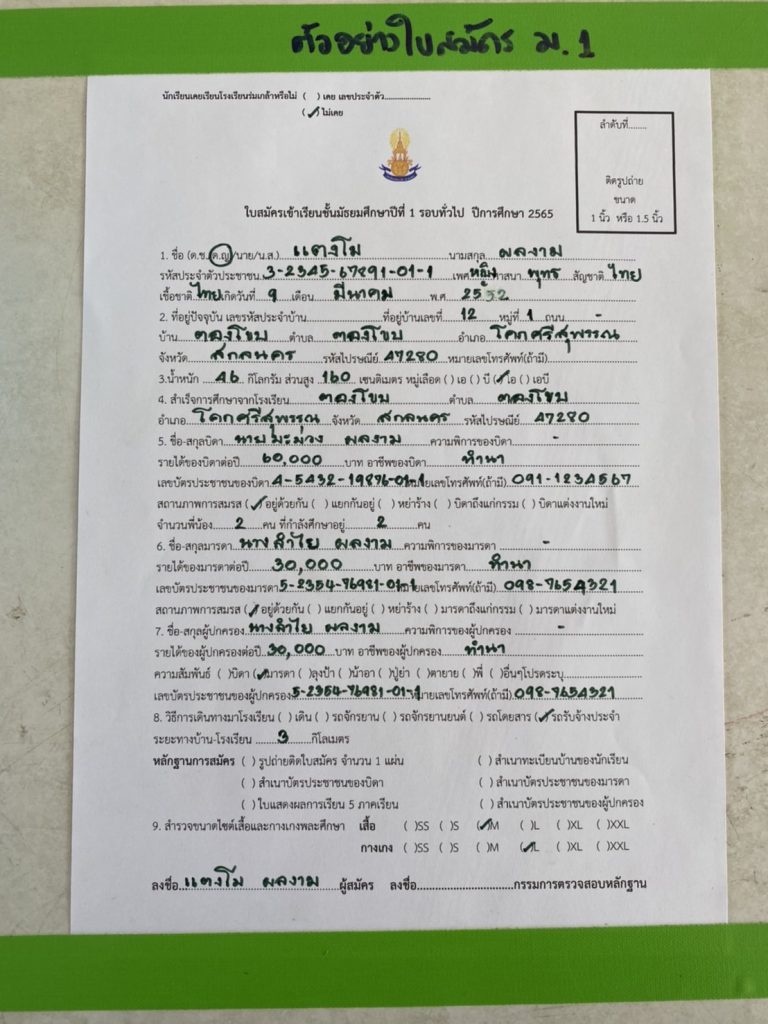 ตัวอย่างใบสมัคร ม.1
นักเรียนเคยเรียนโรงเรียนร่มเกล้าหรือไม่ ( ) เคย เลขประจำตัว....................
(✓) ไม่เคย
ลำดับที่........
ติดรูปถ่าย
ขนาด
1 นิ้ว หรือ 1.5 นิ้ว
ใบสมัครเข้าเรียนชั้นมัธยมศึกษาปีที่ 1 รอบทั่วไป ปีการศึกษา 2565
1. ชื่อ (ด.ช./ด.ญ/นาย/น.ส.) แตงโม นามสกุล ผลงาม
รหัสประจำตัวประชาชน 3-2345-67891-01-1 เพศ หญิง ศาสนา พุทธ สัญชาติ ไทย
เชื้อชาติ ไทย เกิดวันที่ 9 เดือน มีนาคม พ.ศ. 2552
2. ที่อยู่ปัจจุบัน เลขรหัสประจำบ้าน....................ที่อยู่บ้านเลขที่ 12 หมู่ที่ 1 ถนน -
บ้าน ตองโขบ ตำบล ตองโขบ อำเภอ โคกศรีสุพรรณ
จังหวัด สกลนคร รหัสไปรษณีย์ 47280 หมายเลขโทรศัพท์(ถ้ามี)....................
3.น้ำหนัก 46 กิโลกรัม ส่วนสูง 160 เซนติเมตร หมู่เลือด ( ) เอ ( ) บี (✓) โอ ( ) เอบี
4. สำเร็จการศึกษาจากโรงเรียน ตองโขบ ตำบล ตองโขบ
อำเภอ โคกศรีสุพรรณ จังหวัด สกลนคร รหัสไปรษณีย์ 47280
5. ชื่อ-สกุลบิดา นายมะม่วง ผลงาม ความพิการของบิดา -
รายได้ของบิดาต่อปี 60,000 บาท อาชีพของบิดา ทำนา
เลขบัตรประชาชนของบิดา 4-5432-19876-01-1 หมายเลขโทรศัพท์(ถ้ามี) 091-1234567
สถานภาพการสมรส (✓) อยู่ด้วยกัน ( ) แยกกันอยู่ ( ) หย่าร้าง ( ) บิดาถึงแก่กรรม ( ) บิดาแต่งงานใหม่
จำนวนพี่น้อง 2 คน ที่กำลังศึกษาอยู่ 2 คน
6. ชื่อ-สกุลมารดา นางลำไย ผลงาม ความพิการของมารดา -
รายได้ของมารดาต่อปี 30,000 บาท อาชีพของมารดา ทำนา
เลขบัตรประชาชนของมารดา 5-2354-76981-01-1 หมายเลขโทรศัพท์(ถ้ามี) 098-7654321
สถานภาพการสมรส (✓) อยู่ด้วยกัน ( ) แยกกันอยู่ ( ) หย่าร้าง ( ) มารดาถึงแก่กรรม ( ) มารดาแต่งงานใหม่
7. ชื่อ-สกุลผู้ปกครอง นางลำไย ผลงาม ความพิการของผู้ปกครอง -
รายได้ของผู้ปกครองต่อปี 30,000 บาท อาชีพของผู้ปกครอง ทำนา
ความสัมพันธ์ ( )บิดา (✓)มารดา ( )ลุงป้า ( )น้าอา ( )ปู่ย่า ( )ตายาย ( )พี่ ( )อื่นๆโปรดระบุ....................
เลขบัตรประชาชนของผู้ปกครอง 5-2354-76981-01-1 หมายเลขโทรศัพท์(ถ้ามี) 098-7654321
8. วิธีการเดินทางมาโรงเรียน ( ) เดิน ( ) รถจักรยาน ( ) รถจักรยานยนต์ ( ) รถโดยสาร (✓) รถรับจ้างประจำ
ระยะทางบ้าน-โรงเรียน 3 กิโลเมตร
หลักฐานการสมัคร ( ) รูปถ่ายติดใบสมัคร จำนวน 1 แผ่น ( ) สำเนาทะเบียนบ้านของนักเรียน
( ) สำเนาบัตรประชาชนของบิดา ( ) สำเนาบัตรประชาชนของมารดา
( ) ใบแสดงผลการเรียน 5 ภาคเรียน ( ) สำเนาบัตรประชาชนของผู้ปกครอง
9. สำรวจขนาดไซต์เสื้อและกางเกงพละศึกษา เสื้อ ( )SS ( )S (✓)M ( )L ( )XL ( )XXL
กางเกง ( )SS ( )S ( )M (✓)L ( )XL ( )XXL
ลงชื่อ แตงโม ผลงาม ผู้สมัคร ลงชื่อ..............................กรรมการตรวจสอบหลักฐาน